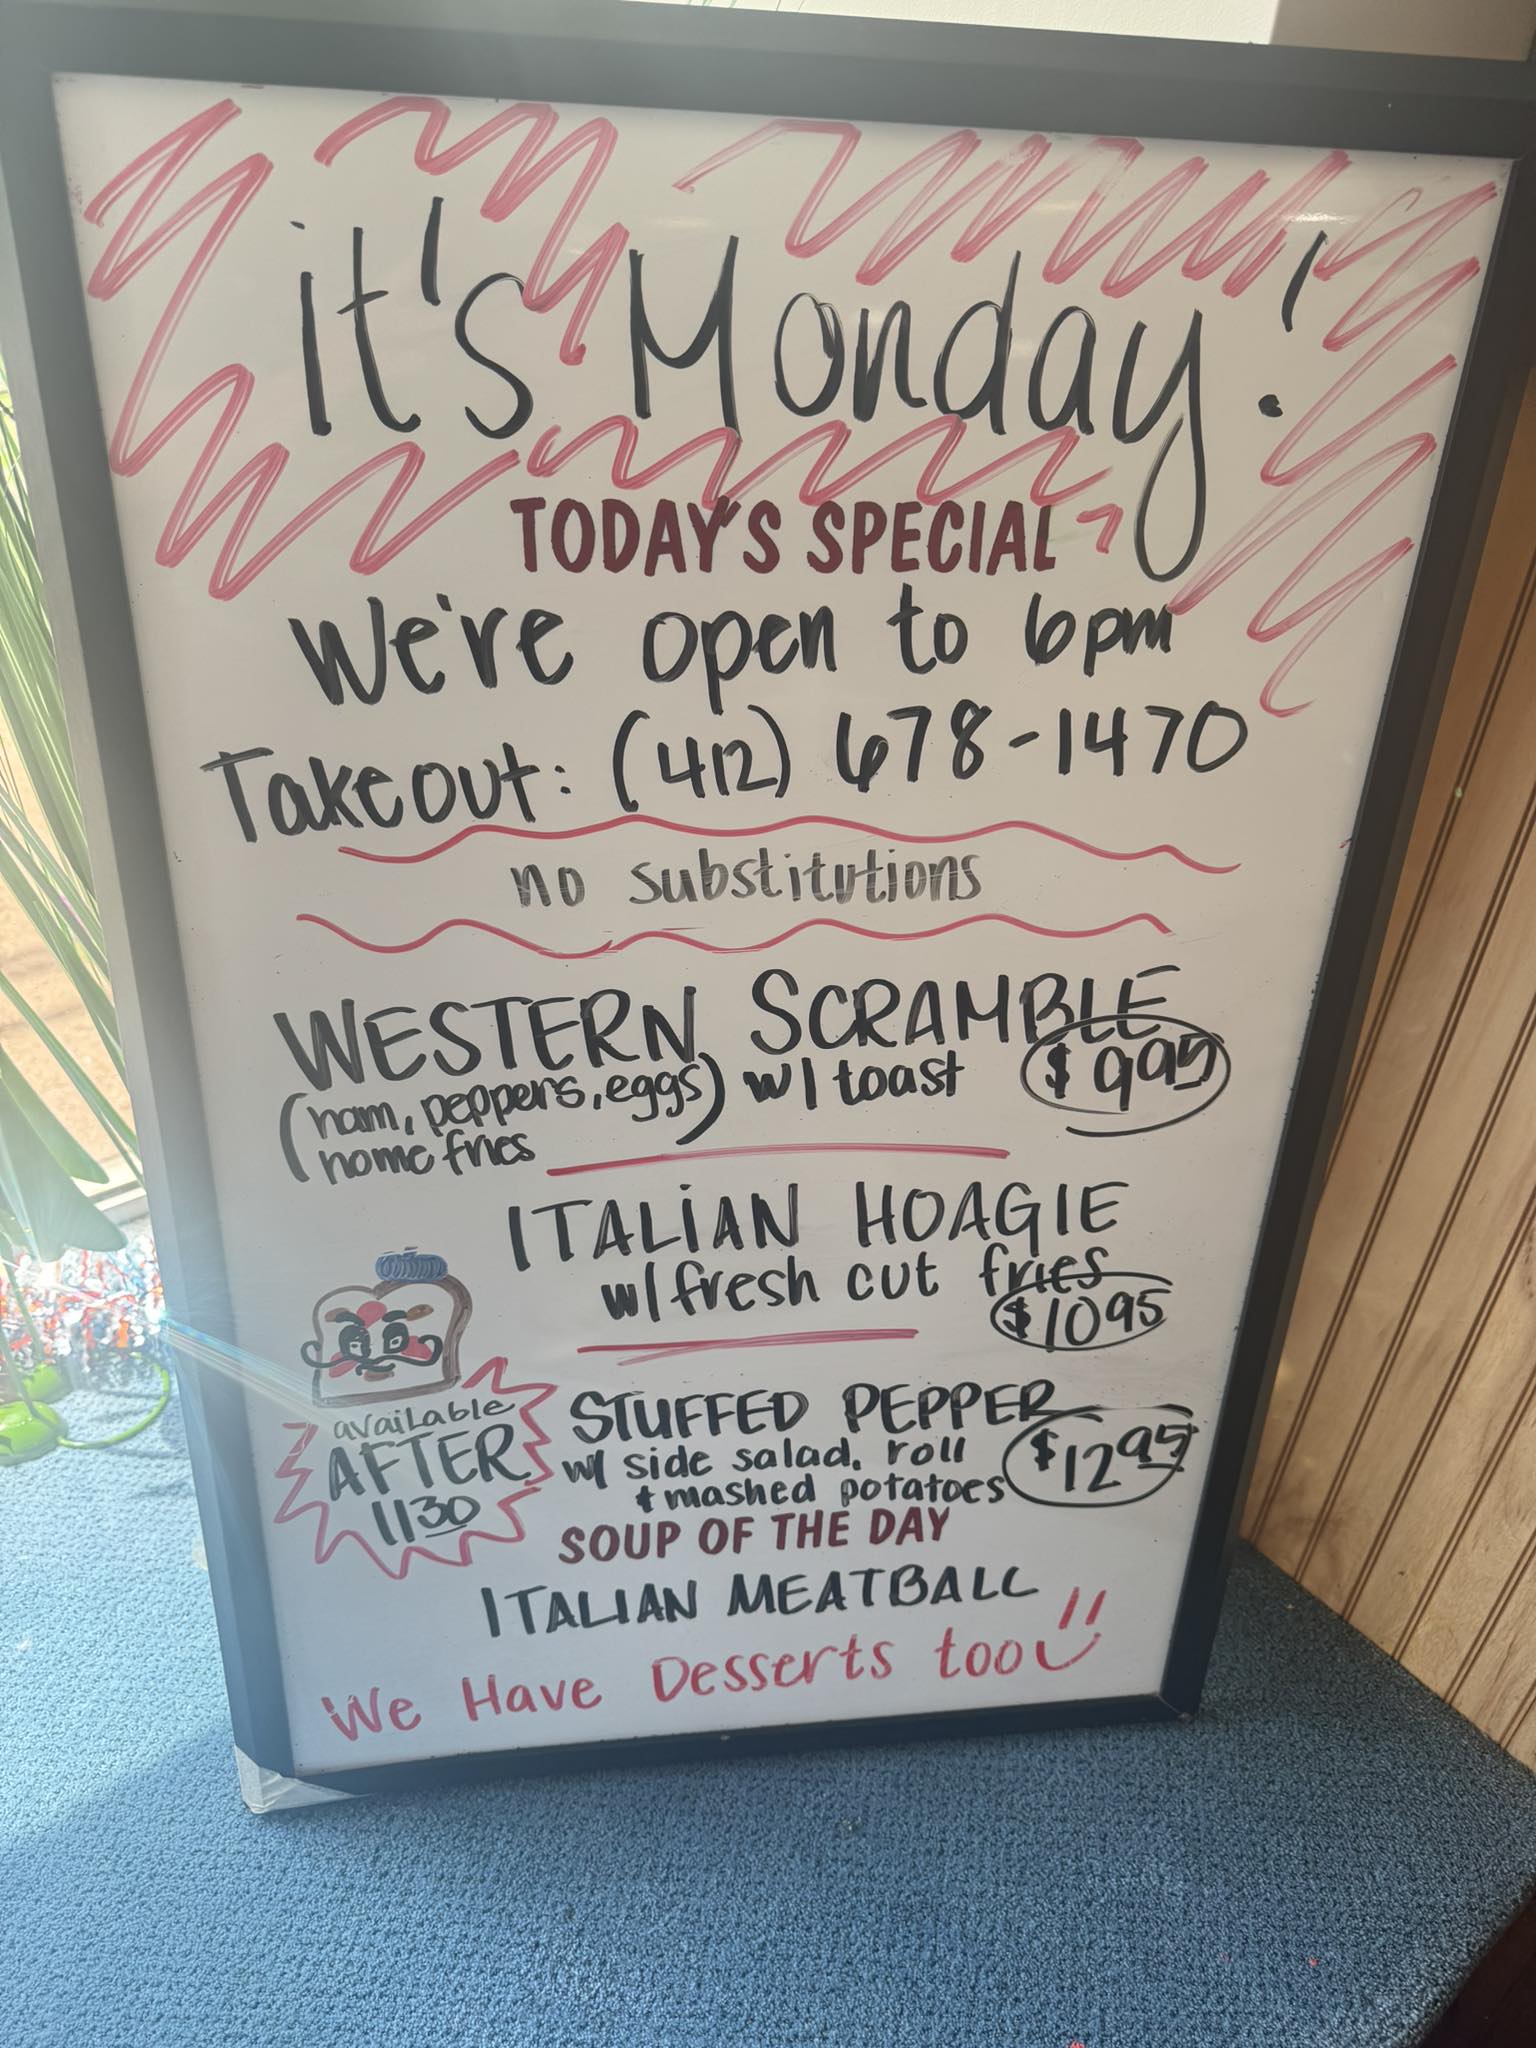 it's Monday!
TODAY'S SPECIAL
We're open to 6pm
Takeout: (412) 678-1470
no substitutions
WESTERN SCRAMBLE
(ham, peppers, eggs) w/ toast $995
home fries
ITALIAN HOAGIE
w/ fresh cut fries
$1095
available
AFTER
1130
STUFFED PEPPER
w/ side salad, roll
+ mashed potatoes $1295
SOUP OF THE DAY
ITALIAN MEATBALL
We Have Desserts too